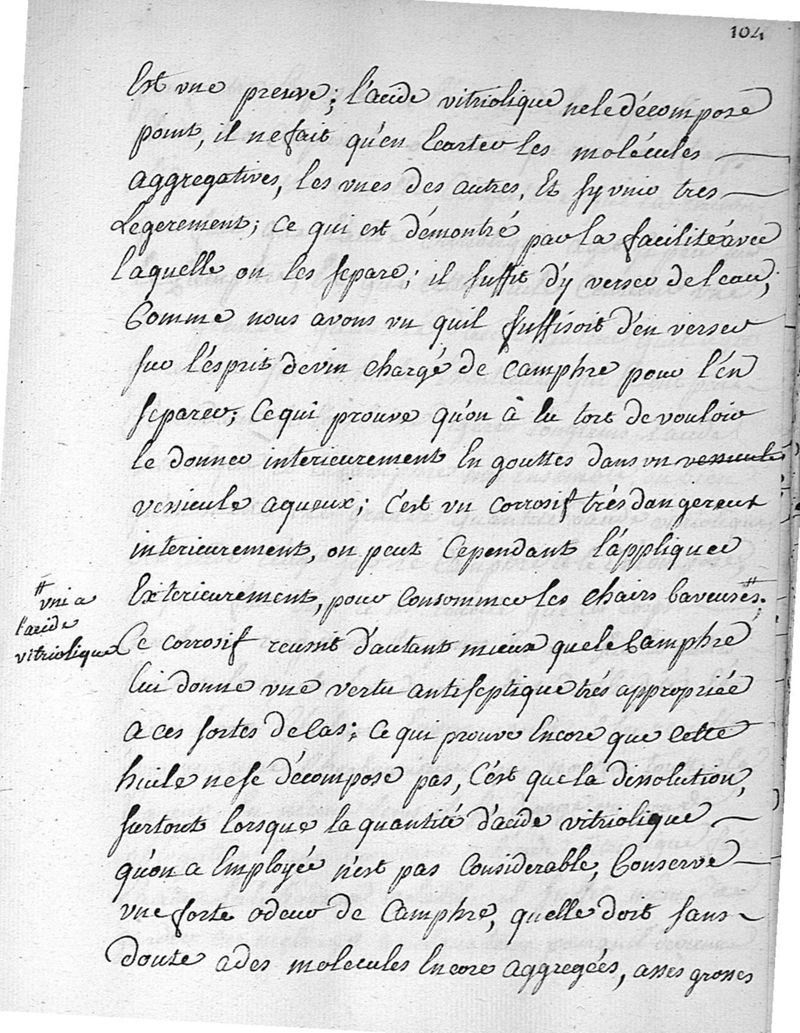 104
Est vne preuve; l'acide vitriolique ne le décompose
point, il ne fait qu'en Ecarter les molécules
aggregatives, les vnes des autres, Et s'y vnir tres
Legerement; ce qui est démontré par la facilité avec
laquelle on les separe; il suffit d'y verser de l'eau,
Comme nous avons vu quil suffisoit d'en verser
sur l'esprit de vin chargé de camphre pour l'en
separer; Ce qui prouve qu'on à Eu tort de vouloir
le donner interieurement En gouttes dans vn vessicule
vessicule aqueux; C'est vn corrosif trés dangereux
interieurement, on peut Cependant l'appliquer
Exterieurement, pour Consommer les chairs baveuses #.
# vni a
l'acide
vitriolique
Ce corrosif reussit d'autant mieux que le Camphre
lui donne vne vertu antiseptique trés appropriée
a ces sortes de Cas; ce qui prouve Encore que cette
huile ne se décompose pas, C'est que la dissolution,
surtout lorsque la quantité d'acide vitriolique
qu'on a Employée n'est pas Considerable, Conserve
vne forte odeur de Camphre, quelle doit sans
doute a des molecules Encore aggregées, asses grosses